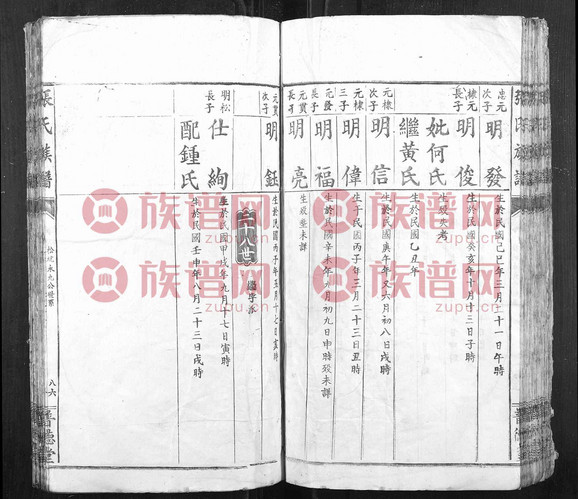 張氏族譜
忠元
次子
明發
生於民國己巳年三月二十一日午時
棣元
長子
明俊
生於民國癸亥年十月十三日子時
妣何氏
生歿失考
繼黃氏
生於民國乙丑年
元棣
次子
明信
生於民國庚午年又六月初八日戌時
元棣
三子
明偉
生于民國丙子年三月二十三日丑時
長子
明福
生於民國辛未年六月初九日申時歿未詳
元貫
長子
明亮
生歿塋未詳
元貫
次子
明鈺
生於民國丙子年五月十七日寅時
二十八世
明松
長子
仕絢
生於民國甲戌年九月十七日寅時
配鍾氏
生於民國壬申年八月二十三日戌時
張氏族譜
八六
普德堂
族譜网
族譜网
族譜网
族譜网